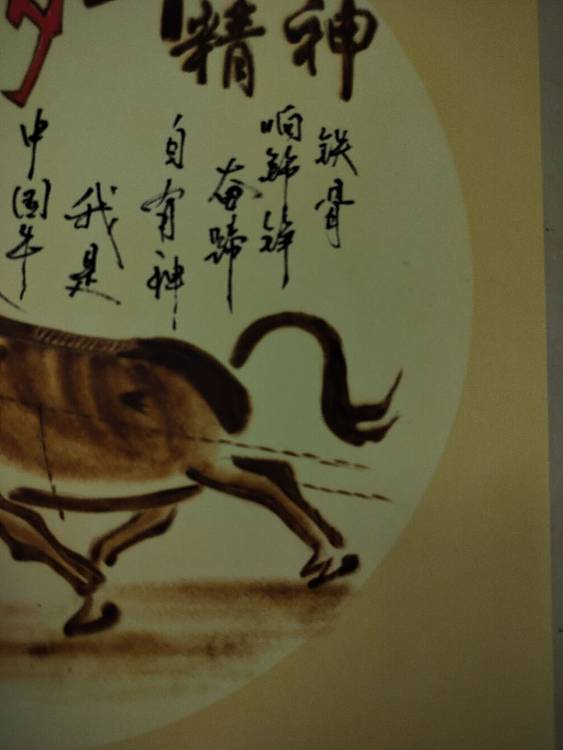 精神
铁骨
响铮铮
奋蹄
自有神
我是
中国牛